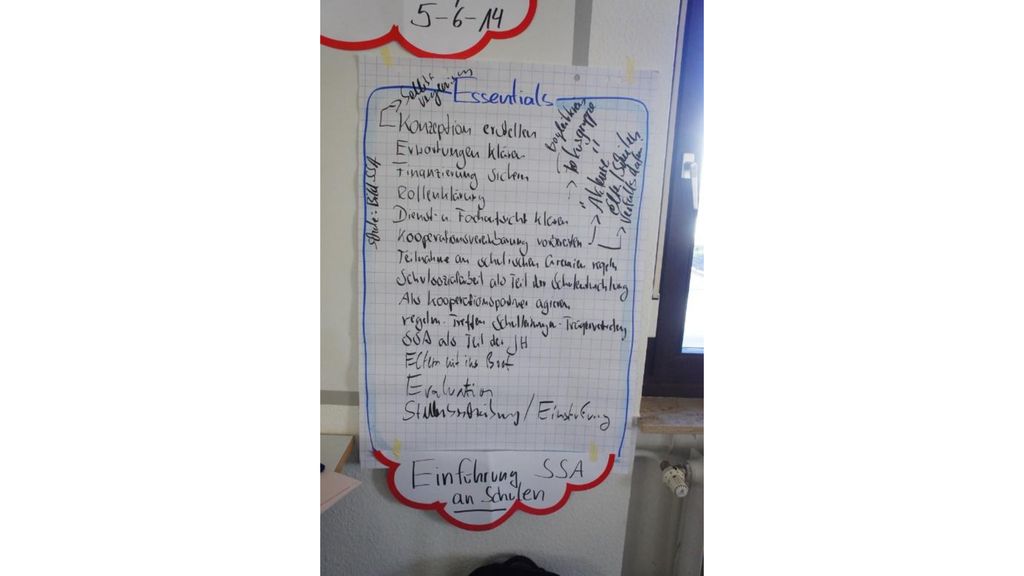 5-6-14
Essentials
Konzeption erstellen
Erwartungen klären
Finanzierung sichern
Rollenklärung
Dienst- u. Fachaufsicht klären
Kooperationsvereinbarung vorbereiten
Teilnahme an schulischen Gremien regeln
Schulsozialarbeit als Teil der Schulentwicklung
Als Kooperationspartner agieren
regelm. Treffen Schulleitungen-Trägervertretung
SSA als Teil der JH
Eltern mit ins Boot
Evaluation
Stellenbeschreibung / Einstufung
Einführung SSA
an Schulen